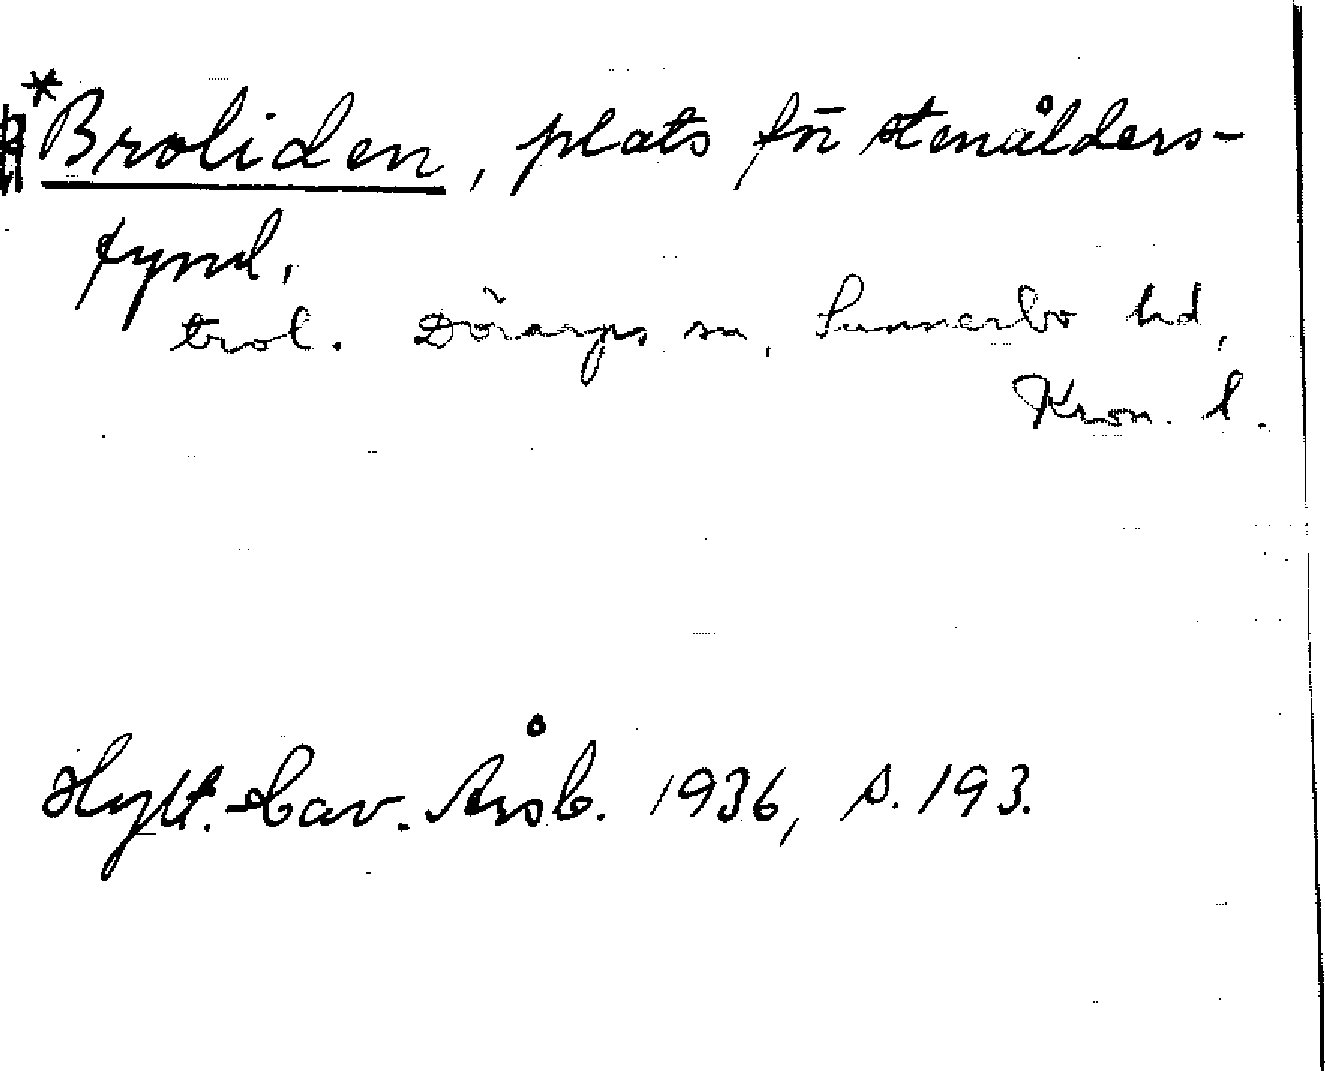 *Broliden, plats för stenålders-
fynd.
trol. Dörarps sn, Sunnerbo hd,
Kron. l.
Hylt.-Cav. Årsb. 1936, s. 193.